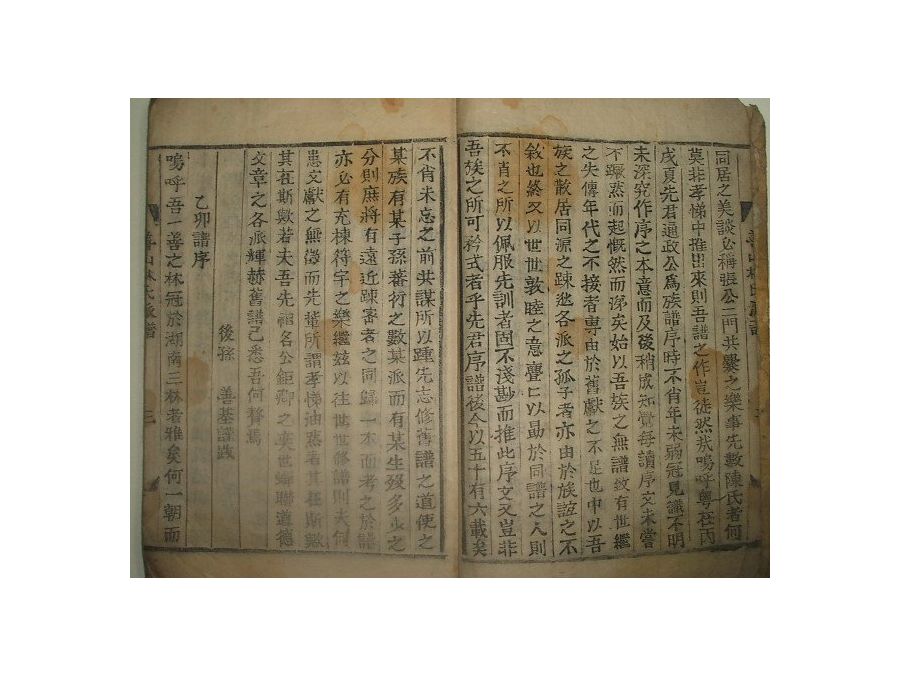 同居之美談必稱張公二門共爨之樂事先數陳氏者何
莫非孝悌中推出來則吾譜之作豈徒然哉嗚呼粤在丙
戌夏先君通政公爲族譜序時不肖年未弱冠見識不明
未深究作序之本意而及後稍成知覺每讀序文未嘗
不蹶然而起慨然而涕矣始以吾族之無譜致有世繼
之失傳年代之不接者專由於舊獻之不足也中以吾
族之散居同源之踈迯各派之孤子者亦由於族誼之不
敘也終又以世世敦睦之意亹亹以勗於同譜之人則
不肖之所以佩服先訓者固不淺尠而推此序文又豈非
吾族之所可矜式者乎先君序譜後今以五十有六載矣
不肖未忘之前共謀所以踵先志修舊譜之道使之
某族有某子孫蕃衍之數某派而有某生歿多少之
分則庶將有遠近踈密者之同歸一本而考之於譜
亦必有充棟符宇之樂繼玆以往世世修譜則夫何
患文獻之無徵而先輩所謂孝悌油然者其在斯歟
其在斯歟若夫吾先祖名公鉅卿之奕世蟬聯道德
文章之各派輝赫舊譜已悉吾何贅焉
後孫 善基謹跋
乙卯譜序
嗚呼吾一善之林冠於湖南三林者雅矣何一朝而
善山林氏派譜